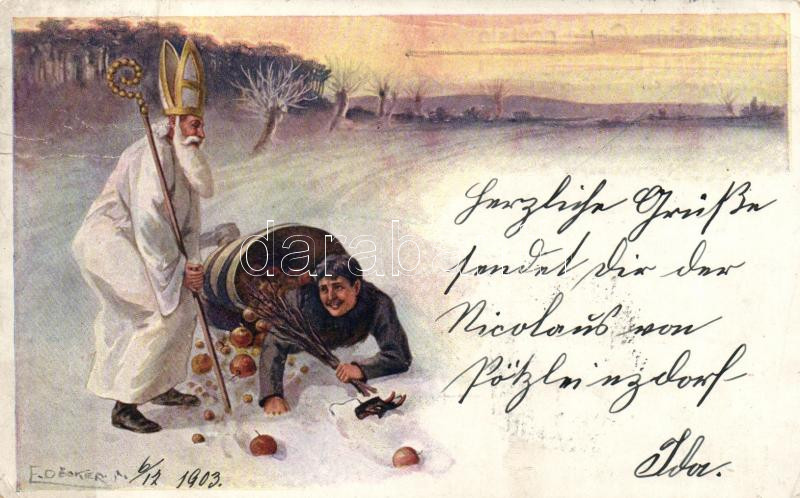 Herzliche Grüße
sendet Dir der
Nicolaus von
Pötzleinzdorf
Ida.
E. DÖCKER
6/12 1903.
darabanth